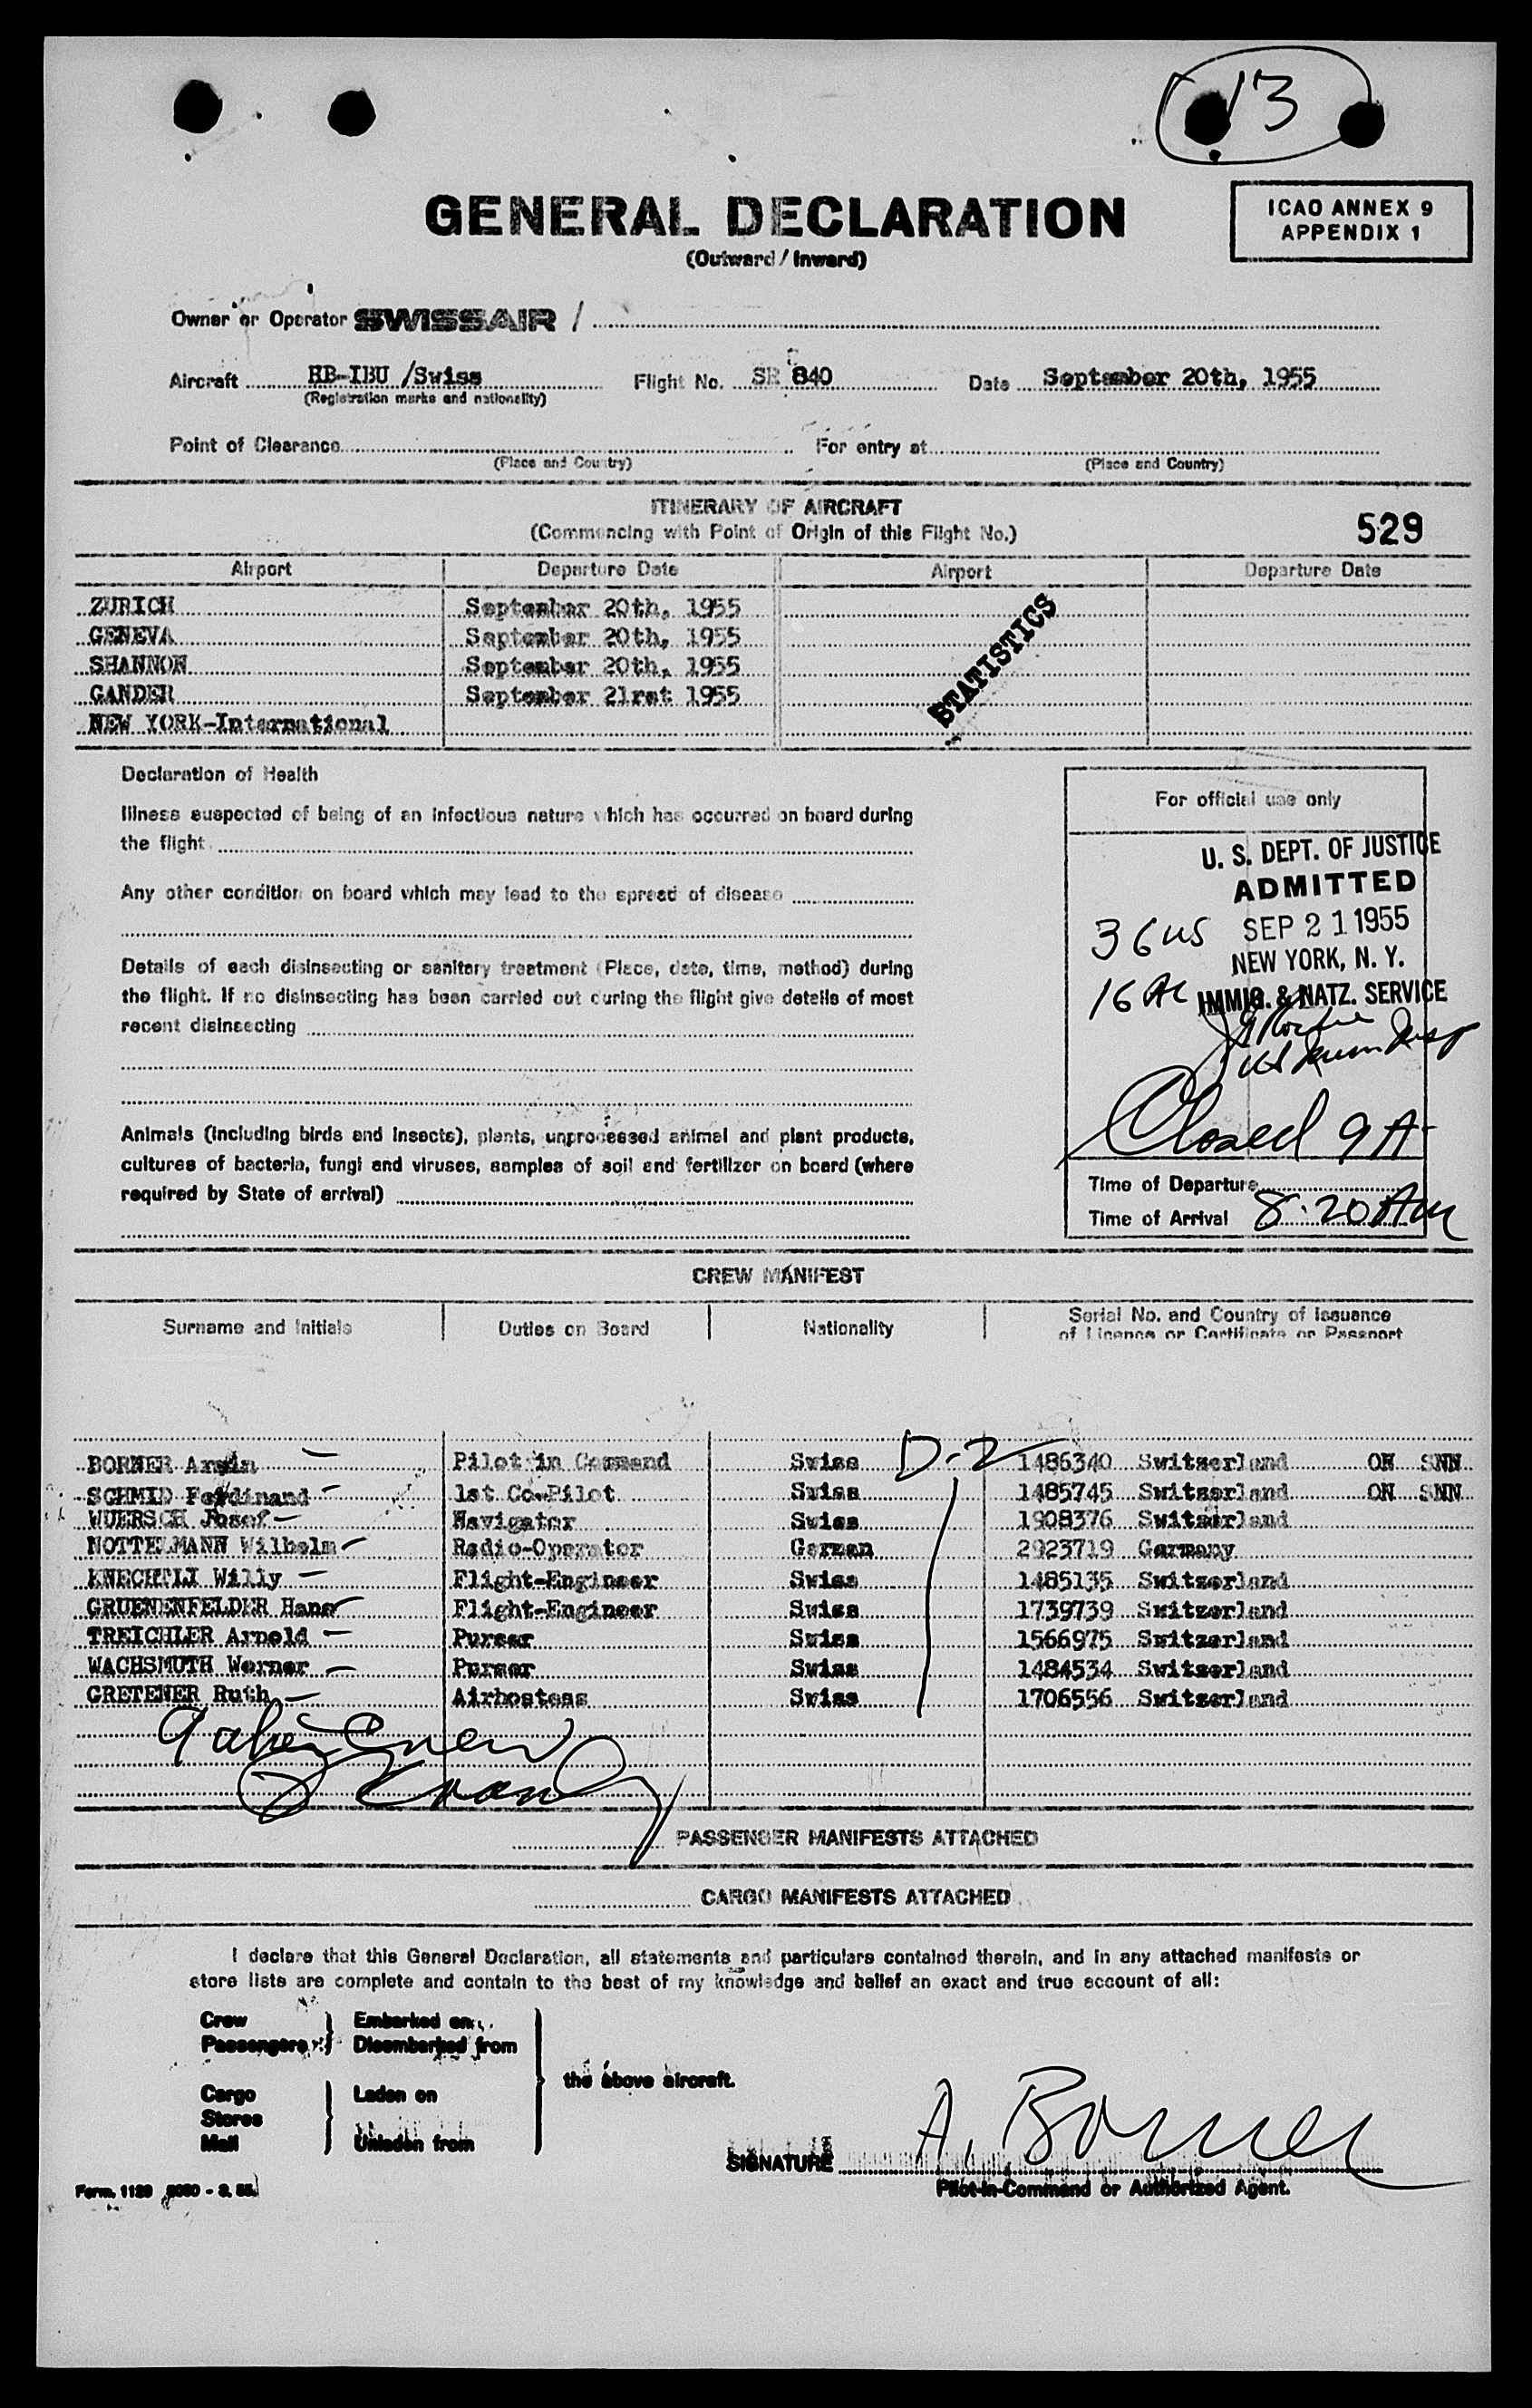 13
GENERAL DECLARATION
(Outward / Inward)
ICAO ANNEX 9
APPENDIX 1
Owner or Operator SWISSAIR /
Aircraft HB-IBU /Swiss Flight No. SR 840 Date September 20th, 1955
(Registration marks and nationality)
Point of Clearance For entry at
(Place and Country) (Place and Country)
ITINERARY OF AIRCRAFT
(Commencing with Point of Origin of this Flight No.)
529
Airport Departure Date Airport Departure Date
ZURICH September 20th, 1955
GENEVA September 20th, 1955
SHANNON September 20th, 1955
GANDER September 21rst 1955
NEW YORK-International
STATISTICS
Declaration of Health
Illness suspected of being of an infectious nature which has occurred on board during
the flight
Any other condition on board which may lead to the spread of disease
Details of each disinsecting or sanitary treatment (Place, date, time, method) during
the flight. If no disinsecting has been carried out during the flight give details of most
recent disinsecting
Animals (including birds and insects), plants, unprocessed animal and plant products,
cultures of bacteria, fungi and viruses, samples of soil and fertilizer on board (where
required by State of arrival)
For official use only
U. S. DEPT. OF JUSTICE
ADMITTED
36 US SEP 21 1955
NEW YORK, N. Y.
16 AL IMMIG. & NATZ. SERVICE
Closed 9 A
Time of Departure
Time of Arrival 8:20 AM
CREW MANIFEST
Surname and Initials Duties on Board Nationality Serial No. and Country of Issuance
of Licence or Certificate or Passport
D-2
BORNER Armin Pilot in Command Swiss 1486340 Switzerland ON SNN
SCHMID Ferdinand 1st Co-Pilot Swiss 1485745 Switzerland ON SNN
WUERSCH Josef Navigator Swiss 1908376 Switzerland
NOTTELMANN Wilhelm Radio-Operator German 2923719 Germany
KNECHTLI Willy Flight-Engineer Swiss 1485135 Switzerland
GRUENENFELDER Hans Flight-Engineer Swiss 1739739 Switzerland
TREICHLER Arnold Purser Swiss 1566975 Switzerland
WACHSMUTH Werner Purser Swiss 1484534 Switzerland
GRETENER Ruth Airhostess Swiss 1706556 Switzerland
9 alien crew
PASSENGER MANIFESTS ATTACHED
CARGO MANIFESTS ATTACHED
I declare that this General Declaration, all statements and particulars contained therein, and in any attached manifests or
store lists are complete and contain to the best of my knowledge and belief an exact and true account of all:
Crew Embarked on
Passengers Disembarked from
the above aircraft.
Cargo Laden on
Stores
Mail Unladen from
SIGNATURE A. Borner
Pilot-in-Command or Authorized Agent.
Form. 1129